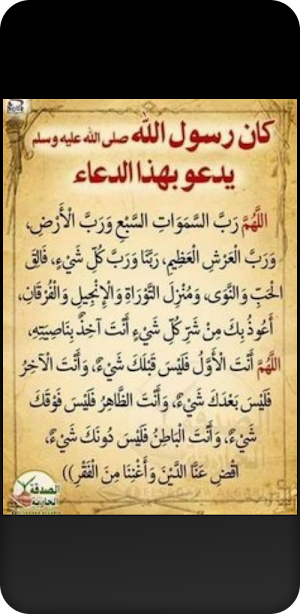 كان رسول الله صلى الله عليه وسلم
يدعو بهذا الدعاء
اللَّهُمَّ رَبَّ السَّمَوَاتِ السَّبْعِ وَرَبَّ الْأَرْضِ،
وَرَبَّ الْعَرْشِ الْعَظِيمِ، رَبَّنَا وَرَبَّ كُلِّ شَيْءٍ، فَالِقَ
الْحَبِّ وَالنَّوَى، وَمُنْزِلَ التَّوْرَاةِ وَالْإِنْجِيلِ وَالْفُرْقَانِ،
أَعُوذُ بِكَ مِنْ شَرِّ كُلِّ شَيْءٍ أَنْتَ آخِذٌ بِنَاصِيَتِهِ،
اللَّهُمَّ أَنْتَ الْأَوَّلُ فَلَيْسَ قَبْلَكَ شَيْءٌ، وَأَنْتَ الْآخِرُ
فَلَيْسَ بَعْدَكَ شَيْءٌ، وَأَنْتَ الظَّاهِرُ فَلَيْسَ فَوْقَكَ
شَيْءٌ، وَأَنْتَ الْبَاطِنُ فَلَيْسَ دُونَكَ شَيْءٌ،
اقْضِ عَنَّا الدَّيْنَ وَأَغْنِنَا مِنَ الْفَقْرِ))
الصدقة
الجارية